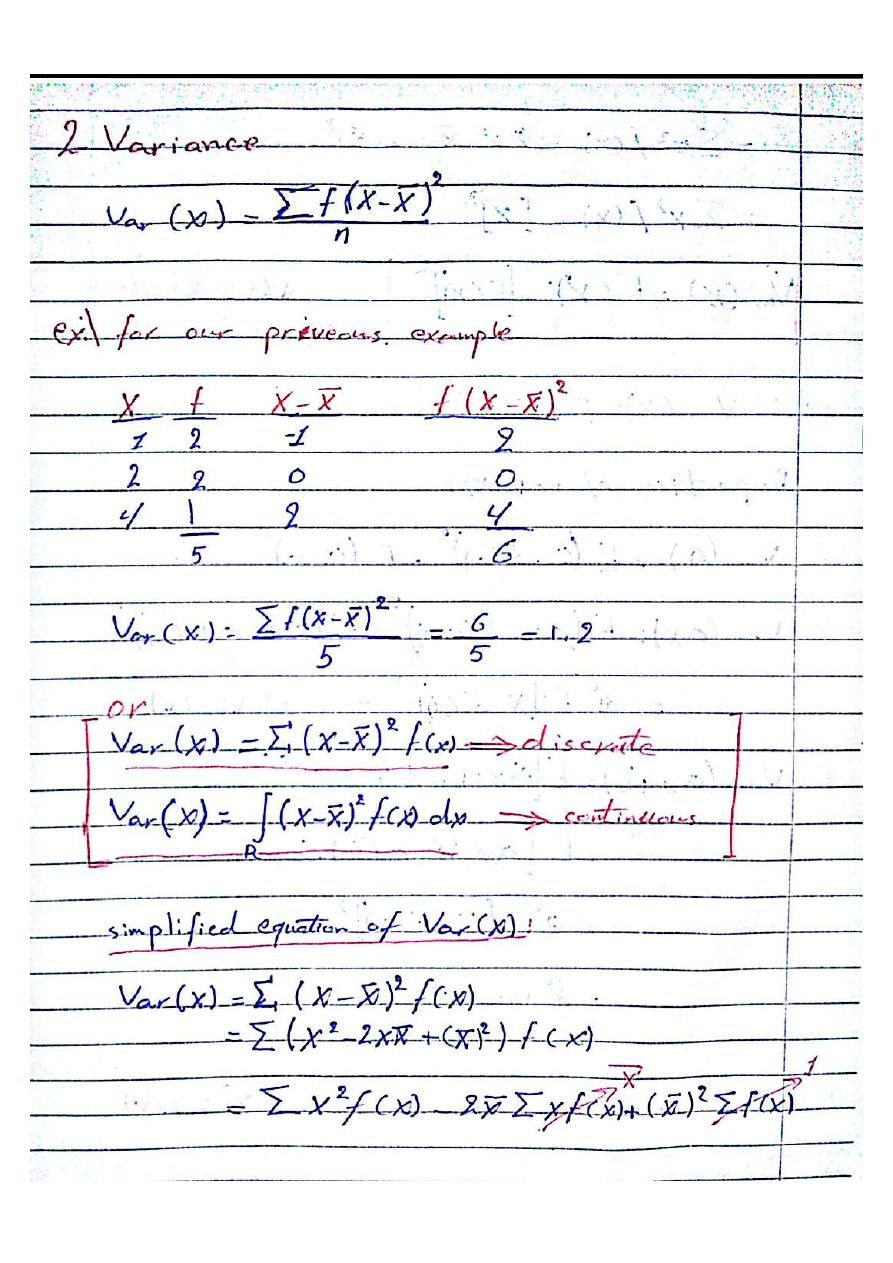 2 Variance
Var (x) = Σf(X-X̄)² / n
ex:\ for our priveous. example
X f X-X̄ f (X-X̄)²
1 2 -1 2
2 2 0 0
4 1 2 4
5 6
Var(x) = Σf(x-x̄)² / 5 = 6/5 = 1.2
or
Var(x) = Σ(X-X̄)² f(x) ⇒ discrate
Var(x) = ∫R (x-x̄)² f(x) dx ⇒ continuous
simplified equation of Var(x):
Var(x) = Σ (X-X̄)² f(x)
= Σ(X²-2xX̄+(X̄)²) f(x)
= Σ X² f(x) - 2x̄ Σ x f(x) X̄ + (x̄)² Σ f(x) 1